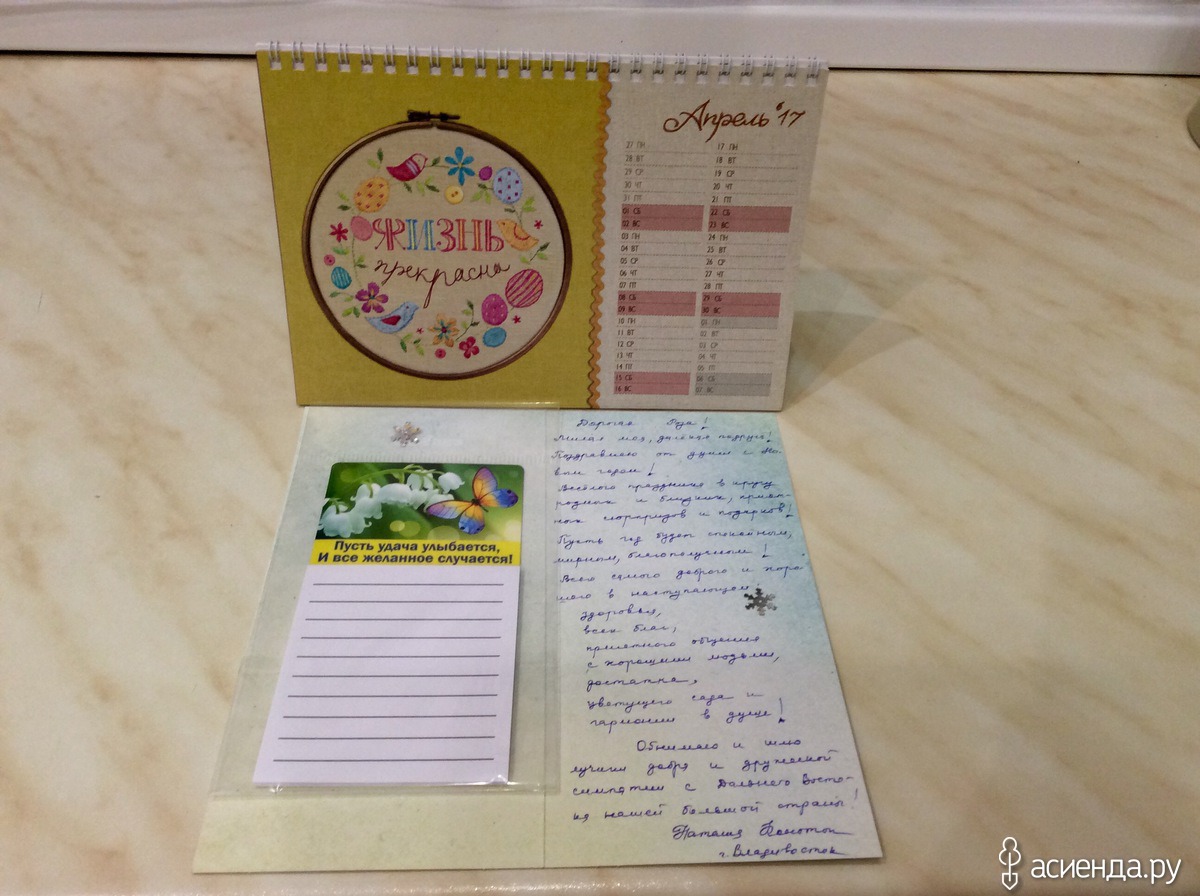 Апрель '17
ЖИЗНЬ
прекрасна
27 ПН
28 ВТ
29 СР
30 ЧТ
31 ПТ
01 СБ
02 ВС
03 ПН
04 ВТ
05 СР
06 ЧТ
07 ПТ
08 СБ
09 ВС
10 ПН
11 ВТ
12 СР
13 ЧТ
14 ПТ
15 СБ
16 ВС
17 ПН
18 ВТ
19 СР
20 ЧТ
21 ПТ
22 СБ
23 ВС
24 ПН
25 ВТ
26 СР
27 ЧТ
28 ПТ
29 СБ
30 ВС
01 ПН
02 ВТ
03 СР
04 ЧТ
05 ПТ
06 СБ
07 ВС
Пусть удача улыбается,
И все желанное случается!
Дорогая !
Милая моя, далёкая подруга!
Поздравляю от души с Но-
вым годом!
Весёлого праздника в кругу
родных и близких, прият-
ных сюрпризов и подарков!
Пусть год будет спокойным,
мирным, благополучным!
Всего самого доброго и хоро-
шего в наступающем:
здоровья,
всех благ,
приятного общения
с хорошими людьми,
достатка,
цветущего сада и
гармонии в душе!
Обнимаю и шлю
лучики добра и дружеской
симпатии с Дальнего Восто-
ка нашей большой страны!
Наташа
г. Владивосток
асиенда.ру